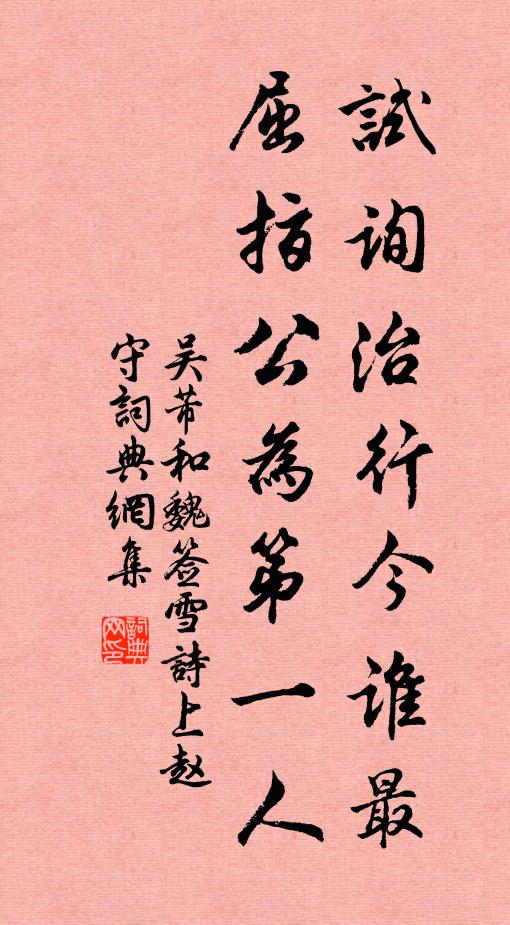 試询治行今谁最
屈指公為第一人
吴芾和魏签雪詩上赵
守詞典網集
詞典
网印